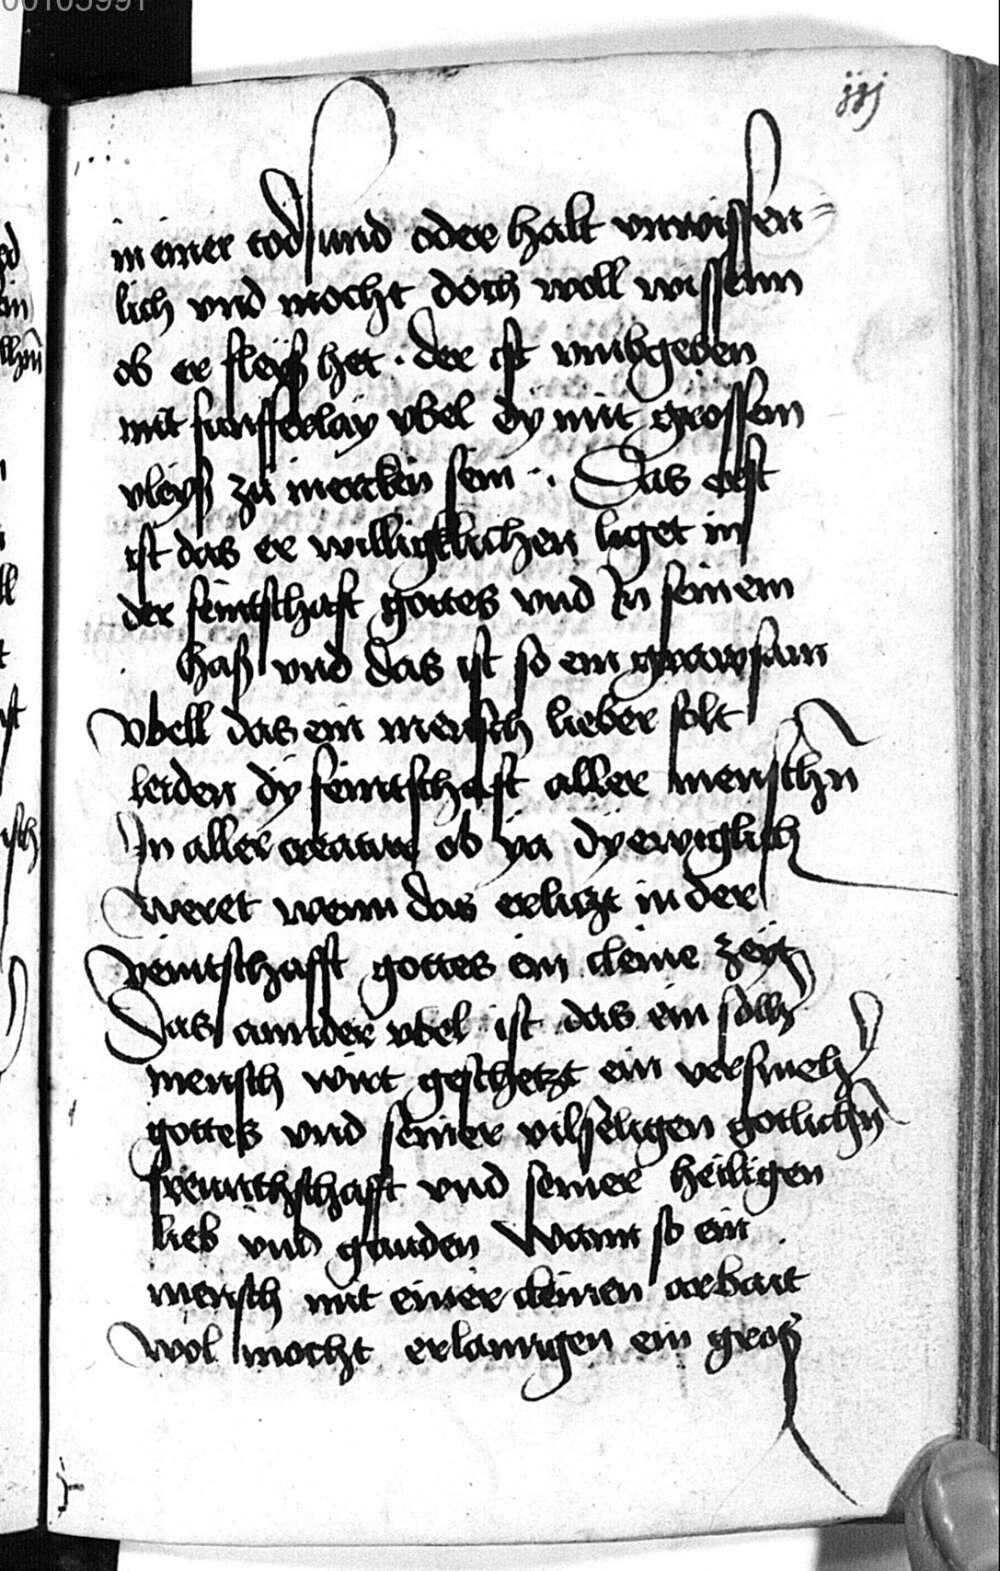 00103991
jjj
in einer tod sund oder halt vnwissen-
lich vnd mocht doch woll wissenn
ob er fleyß het · der ist vmbgeben
mit funfferlay vbel dy mit grossem
vleyß zu mercken sein · Das erst
ist das er willigklichen liget in
der feintschaft gottes vnd Jn seinem
haß vnd das ist so ein grawsam
vbell das ein mensch lieber solt
leiden dy feintschaft aller menschn̄
Jn aller creatur ob ya dy ewiglich
weret wenn das er ligt in der
veintschafft gottes ein cleine zeyt
Das annder vbel ist das ein sölh
mensch wirt geschetzt ein versmeh
gotteß vnd seiner vilseligen gotlichn̄
freuntschafft vnd seiner heiligen
lieb vnd gnaden Wann so ein
mensch mit einer cleinen arbait
wol mocht erlanngen ein groß